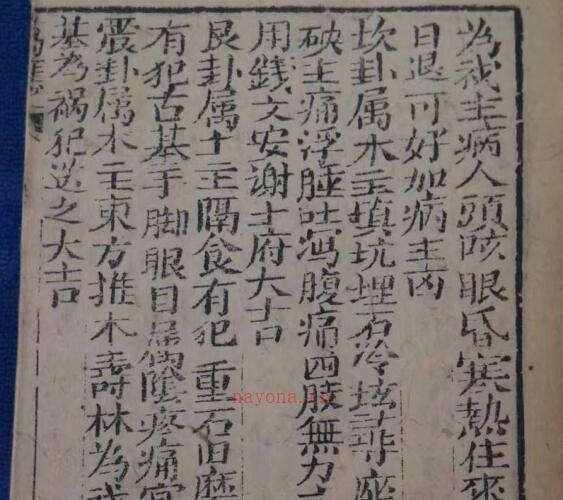 為戎主病人頭咳眼昏寒熱住來
日退可好加病主凶
坎卦属水主填坑埋石冷坛尋座
主痛浮腫吐瀉腹痛四肢無力
用錢文安谢土府大吉
艮卦属土主隔食有犯 重石旧磨
有犯古基手脚眼目陰疼痛
震卦属木主東方推木壽林為戎
基為禍犯送之大吉